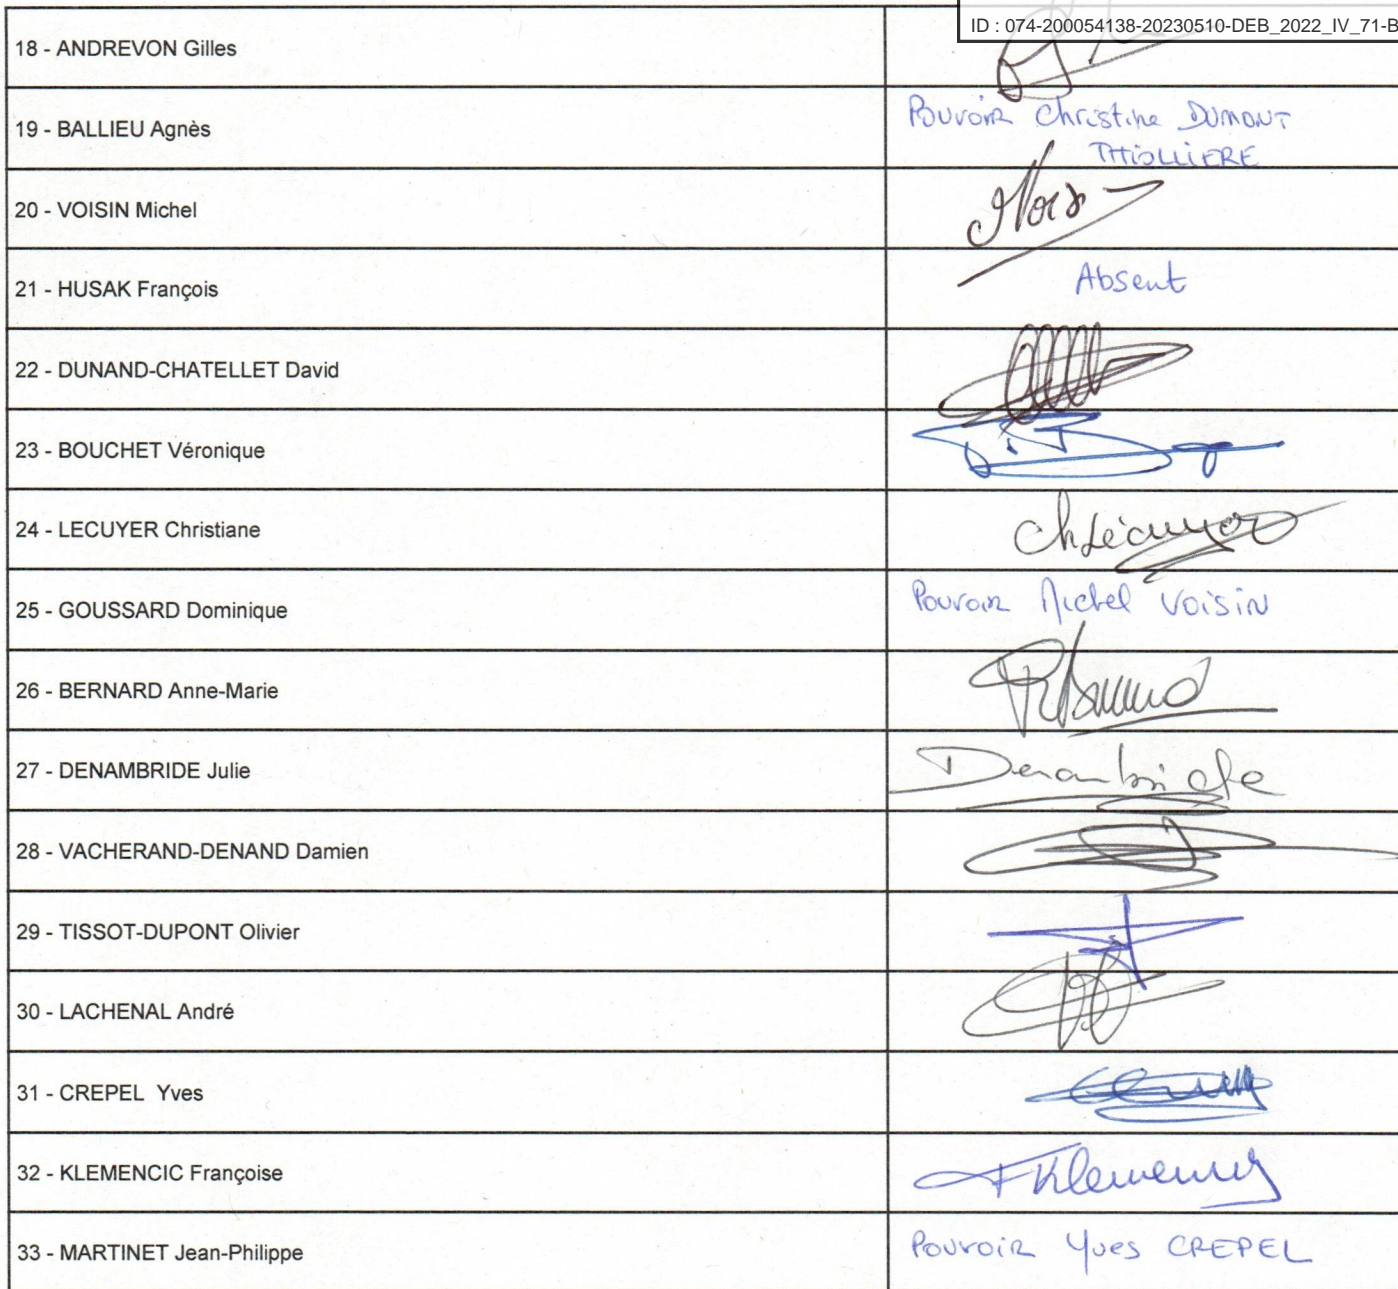 ID : 074-200054138-20230510-DEB_2022_IV_71-B
18 - ANDREVON Gilles
19 - BALLIEU Agnès
Pouvoir Christine DUMONT
THIOLLIERE
20 - VOISIN Michel
21 - HUSAK François
Absent
22 - DUNAND-CHATELLET David
23 - BOUCHET Véronique
24 - LECUYER Christiane
Ch Lécuyer
25 - GOUSSARD Dominique
Pouvoir Michel VOISIN
26 - BERNARD Anne-Marie
27 - DENAMBRIDE Julie
Denambride
28 - VACHERAND-DENAND Damien
29 - TISSOT-DUPONT Olivier
30 - LACHENAL André
31 - CREPEL Yves
32 - KLEMENCIC Françoise
33 - MARTINET Jean-Philippe
Pouvoir Yves CREPEL